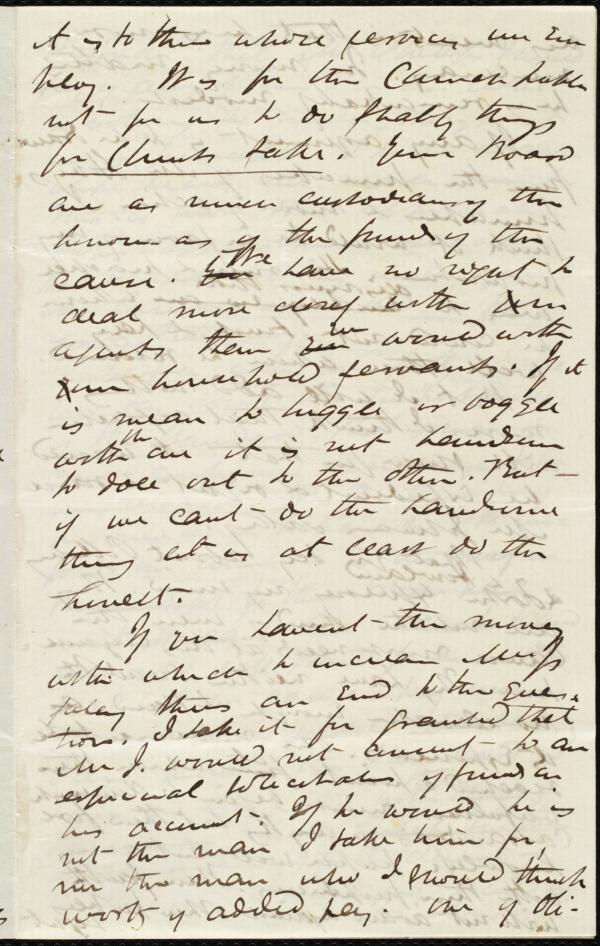 it is to them whose services we em
ploy. It is for the Church's sake
not for us to do shabby things
for Christ's sake. Your Board
are as much custodians of the
honor as of the funds of the
cause. We have no right to
deal more closely with our
agents than we would with
our household servants. If it
is mean to higgle or boggle
with the one it is not handsome
to dole out to the other. But
if we can't do the handsome
thing let us at least do the
honest.
If you haven't the money
with which to increase
salary there's an end to the ques-
tion. I take it for granted that
Mr J. would not consent to an
especial solicitation of funds on
his account. If he would he is
not the man I take him for,
nor the man who I should think
worthy of added pay. One of